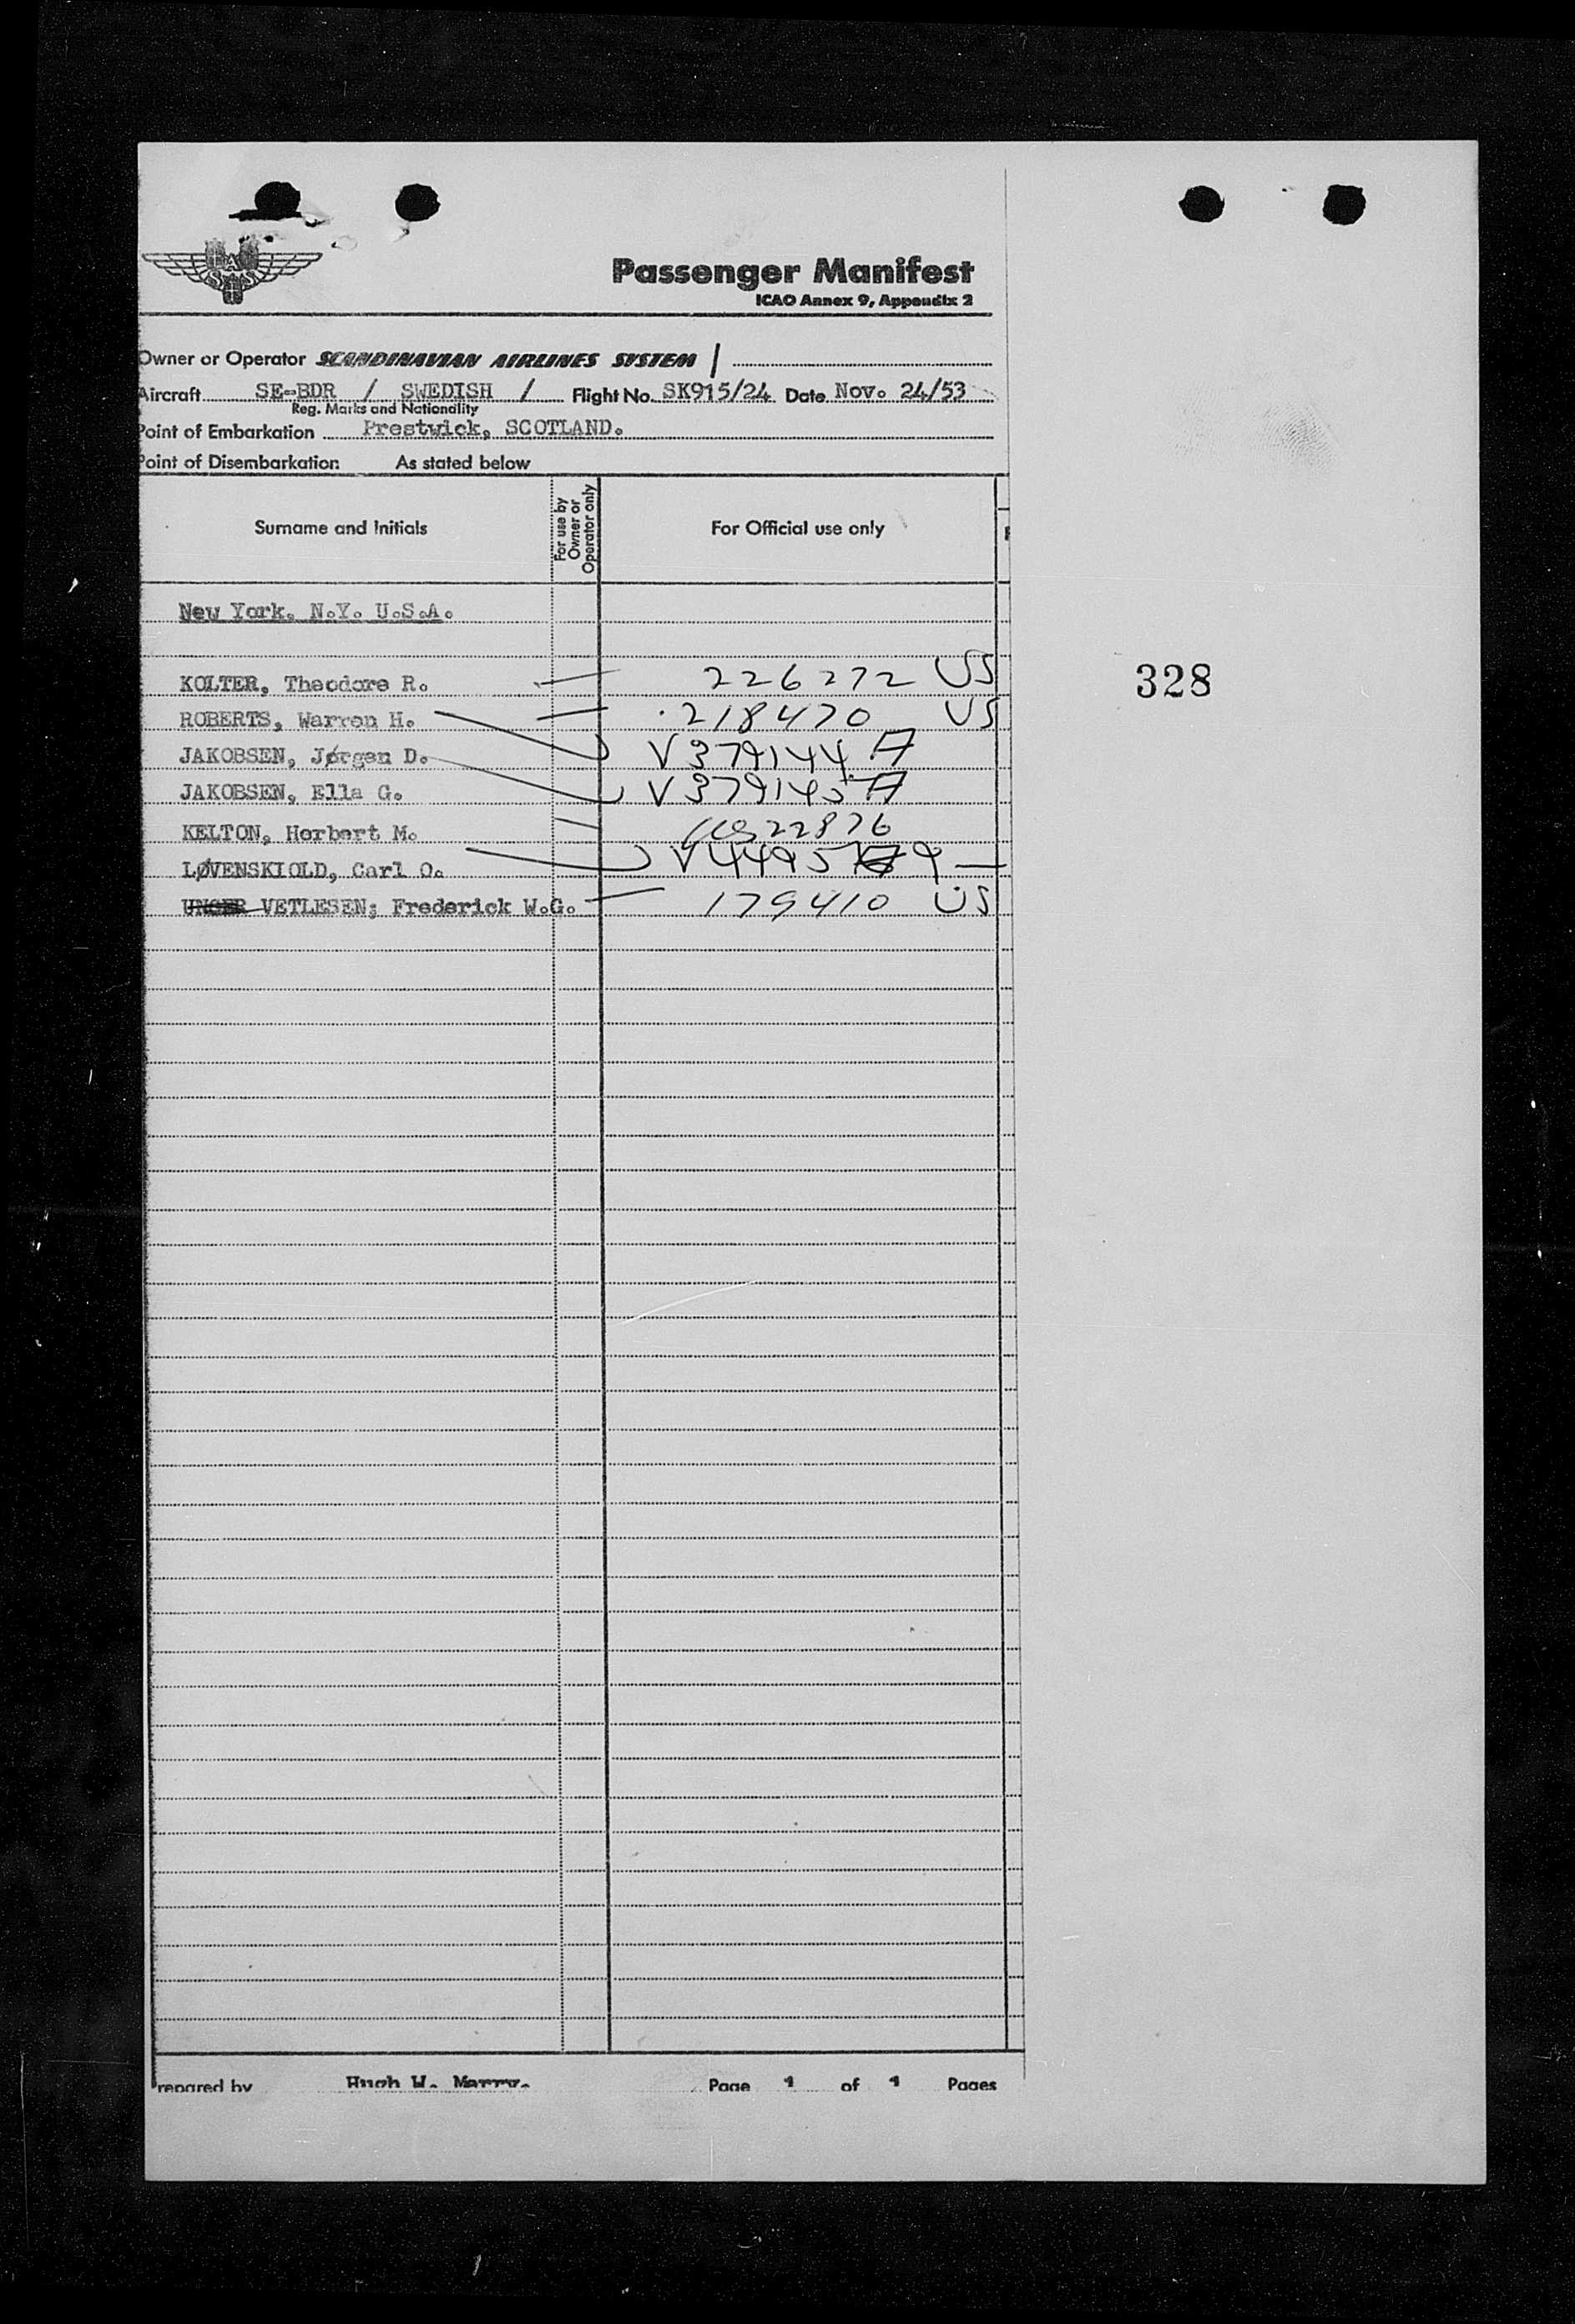 SAS
Passenger Manifest
ICAO Annex 9, Appendix 2
Owner or Operator SCANDINAVIAN AIRLINES SYSTEM /
Aircraft SE-BDR / SWEDISH / Flight No. SK915/24 Date Nov. 24/53
Reg. Marks and Nationality
Point of Embarkation Prestwick, SCOTLAND.
Point of Disembarkation As stated below
Surname and Initials For use by Owner or Operator only For Official use only
New York. N.Y. U.S.A.
KOLTER, Theodore R. 226272 US
328
ROBERTS, Warren H. 218470 US
JAKOBSEN, Jørgen D. V379144 A
JAKOBSEN, Ella G. V379145 A
KELTON, Herbert M. 22876
LØVENSKIOLD, Carl O.
UNGER VETLESEN; Frederick W.G. 179410 US
Prepared by Hugh W. Merry. Page 1 of 1 Pages